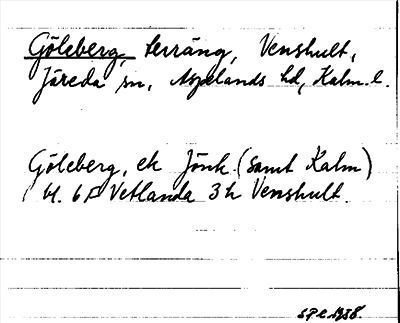 Göleberg, terräng, Venshult,
Järeda sn, Aspelands hd, Kalm. l.
Göleberg, ek Jönk. (samt Kalm)
bl. 6 P Vetlanda 3 h Venshult.
1938.